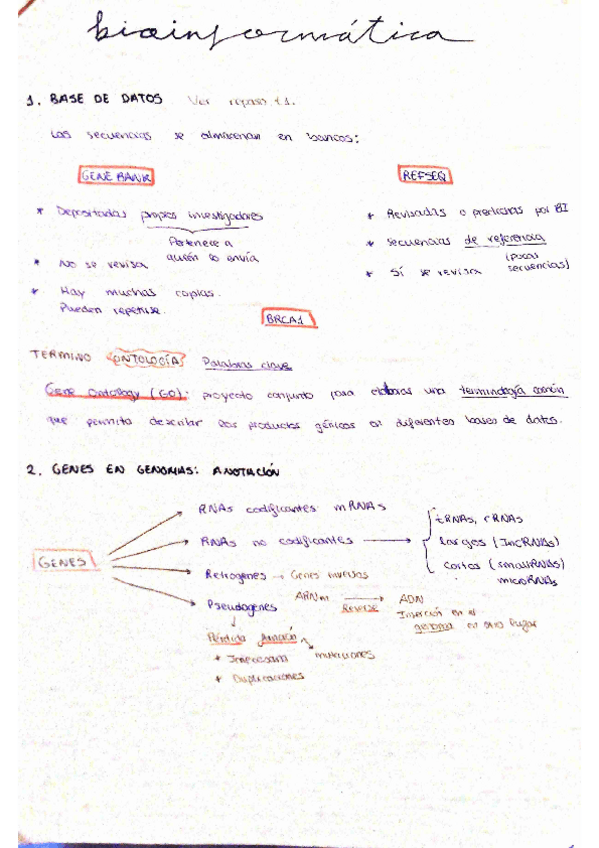 bioinformática
1. BASE DE DATOS Ver repaso 1.1.
Las secuencias se almacenan en bancos:
GENE BANK
REFSEQ
* Depositadas propios investigadores
Pertenece a
quién lo envía
* No se revisa
* Hay muchas copias.
Pueden repetirse.
* Revisadas o predichas por BI
* Secuencias de referencia
(pocas
secuencias)
* Sí se revisa
BRCA1
TERMINO ONTOLOGÍA Palabras clave
Gene Ontology (GO): proyecto conjunto para elaborar una terminología común
que permita describir los productos génicos en diferentes bases de datos.
2. GENES EN GENOMAS: ANOTACIÓN
GENES
RNAs codificantes mRNAs
RNAs no codificantes
tRNAs, rRNAs
largos (lncRNAs)
cortos (smallRNAs)
microRNAs
Retrogenes → Genes nuevos
ARNm → ADN
Reverse
Inserción en el
genoma en otro lugar
Pseudogenes
Pérdida función
mutaciones
* Duplicaciones